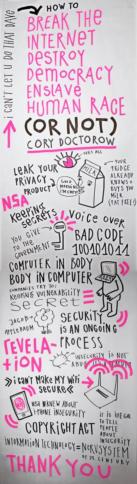 I CAN'T LET U DO THAT DAVE
HOW TO
BREAK THE
INTERNET
DESTROY
DEMOCRACY
ENSLAVE
HUMAN RACE
(OR NOT)
CORY DOCTOROW
LEAK YOUR
PRIVACY
PRODUCT
YOUR
FRIDGE
ALREADY
KNOWS
BUYS YOU
MILK
MILK
NSA
KEEPING
SECRETS
VOICE OVER
YOU GIVE
TO THE
GOVERNMENT
BAD CODE
COMPUTER IN BODY
BODY IN COMPUTER
COMPANIES TRY TO
VULNERABILITY
SECRET
SECURITY
IS AN ONGOING
PROCESS
REVELA-
TION
INSECURITY IS NOT
I CAN'T MAKE MY WIFI
SECURE
NSA KNEW ABOUT
INSECURITY
IT IS
TO TELL
COPYRIGHT ACT
INFORMATION TECHNOLOGY = NERVSYSTEM
THANK YOU